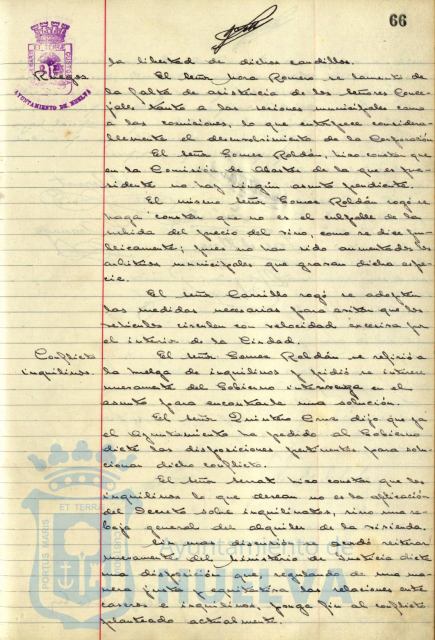 66
la libertad de dichos caudillos.
Ruegos
El Señor Mora Romero se lamentó de
la falta de asistencia de los Señores Conce-
jales tanto a las sesiones municipales como
a las comisiones, lo que entorpece considera-
blemente el desenvolvimiento de la Corporación
El Señor Gomez Roldán, hizo constar que
en la Comisión de Abastos de la que es pre-
sidente no hay ningún asunto pendiente.
El mismo Señor Gomez Roldán rogó se
haga constar que no es el culpable de la
subida del precio del vino, como se dice pu-
blicamente; pues no han sido aumentados los
arbitrios municipales que gravan dicha espe-
cie.
El Señor Carrillo rogó se adopten
las medidas necesarias para evitar que los
vehículos circulen con velocidad excesiva por
el interior de la Ciudad.
Conflicto
inquilinos.
El Señor Gomez Roldán se refirió a
la huelga de inquilinos y pidió se interese
nuevamente del Gobierno intervenga en el
asunto para encontrarle una solución.
El Señor Quintero Cruz dijo que ya
el Ayuntamiento ha pedido al Gobierno
dicte las disposiciones pertinentes para solu-
cionar dicho conflicto.
El Señor hizo constar que los
inquilinos lo que desean no es la aplicación
del Decreto sobre inquilinatos, sino una re-
baja general del alquiler de la vivienda.
Sin mas discusión se acordó reiterar
nuevamente del Ministerio de Justicia dicte
una disposición que, regulando de una ma-
nera justa y equitativa las relaciones entre
caseros e inquilinos, ponga fin al conflicto
planteado actualmente.
AYUNTAMIENTO DE HUELVA
PORTUS MARIS ET TERRAE CUSTODIA
Ayuntamiento de
HUELVA